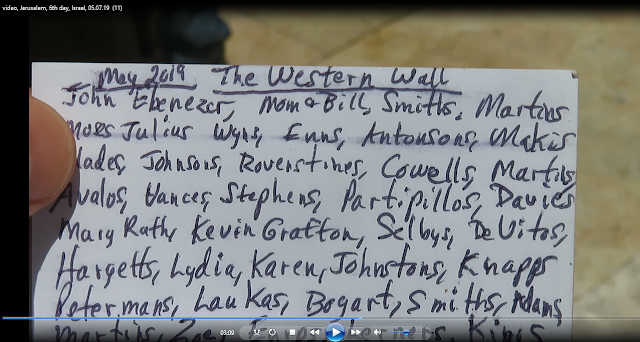 video, Jerusalem, 6th day, Israel, 05.07.19 (11)
May 2019 The Western Wall
John Ebenezer, Mom & Bill, Smiths, Martins
Moses Julius Wyns, Enns, Antonsons, Makis
Johnsons, Roverstines, Cowells, Martins,
Avalos, Vances, Stephens, Partipillos, Davies
Mary Rath, Kevin Gratton, Selbys, DeVitos,
Hargetts, Lydia, Karen, Johnstons, Knapps
Petermans, Laukas, Bogart, Smiths, Adams,
Martins, Kings
03:09